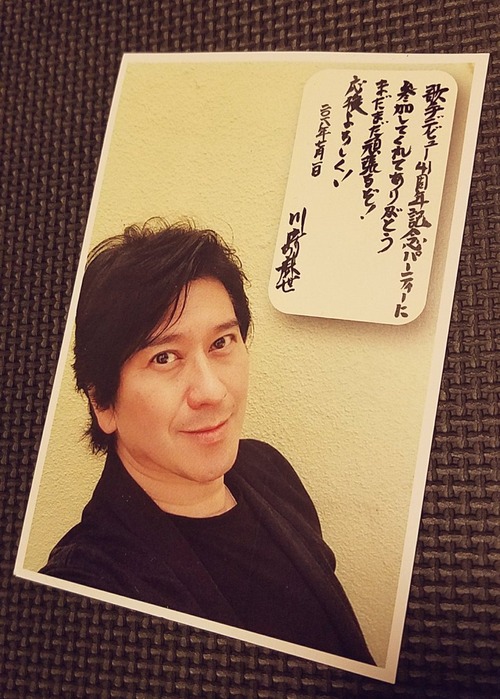 歌手デビュー41周年記念パーティーに
参加してくれてありがとう
まだまだ頑張るぞ!
応援よろしく!
二〇一八年七月一日
川﨑麻世